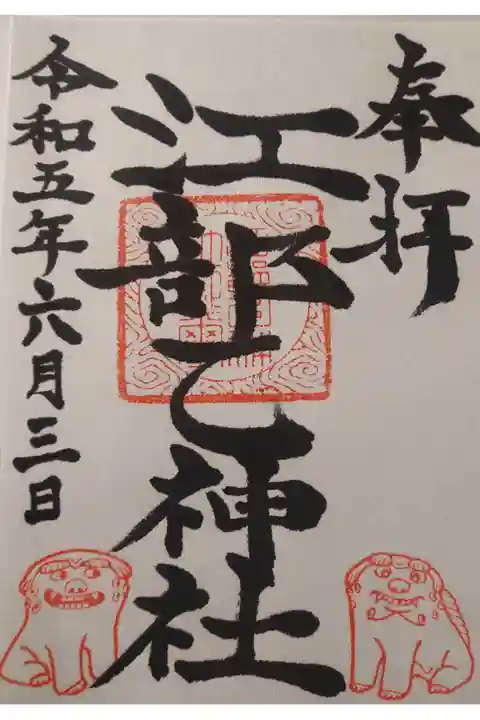 奉拝
江部乙神社
令和五年六月三日